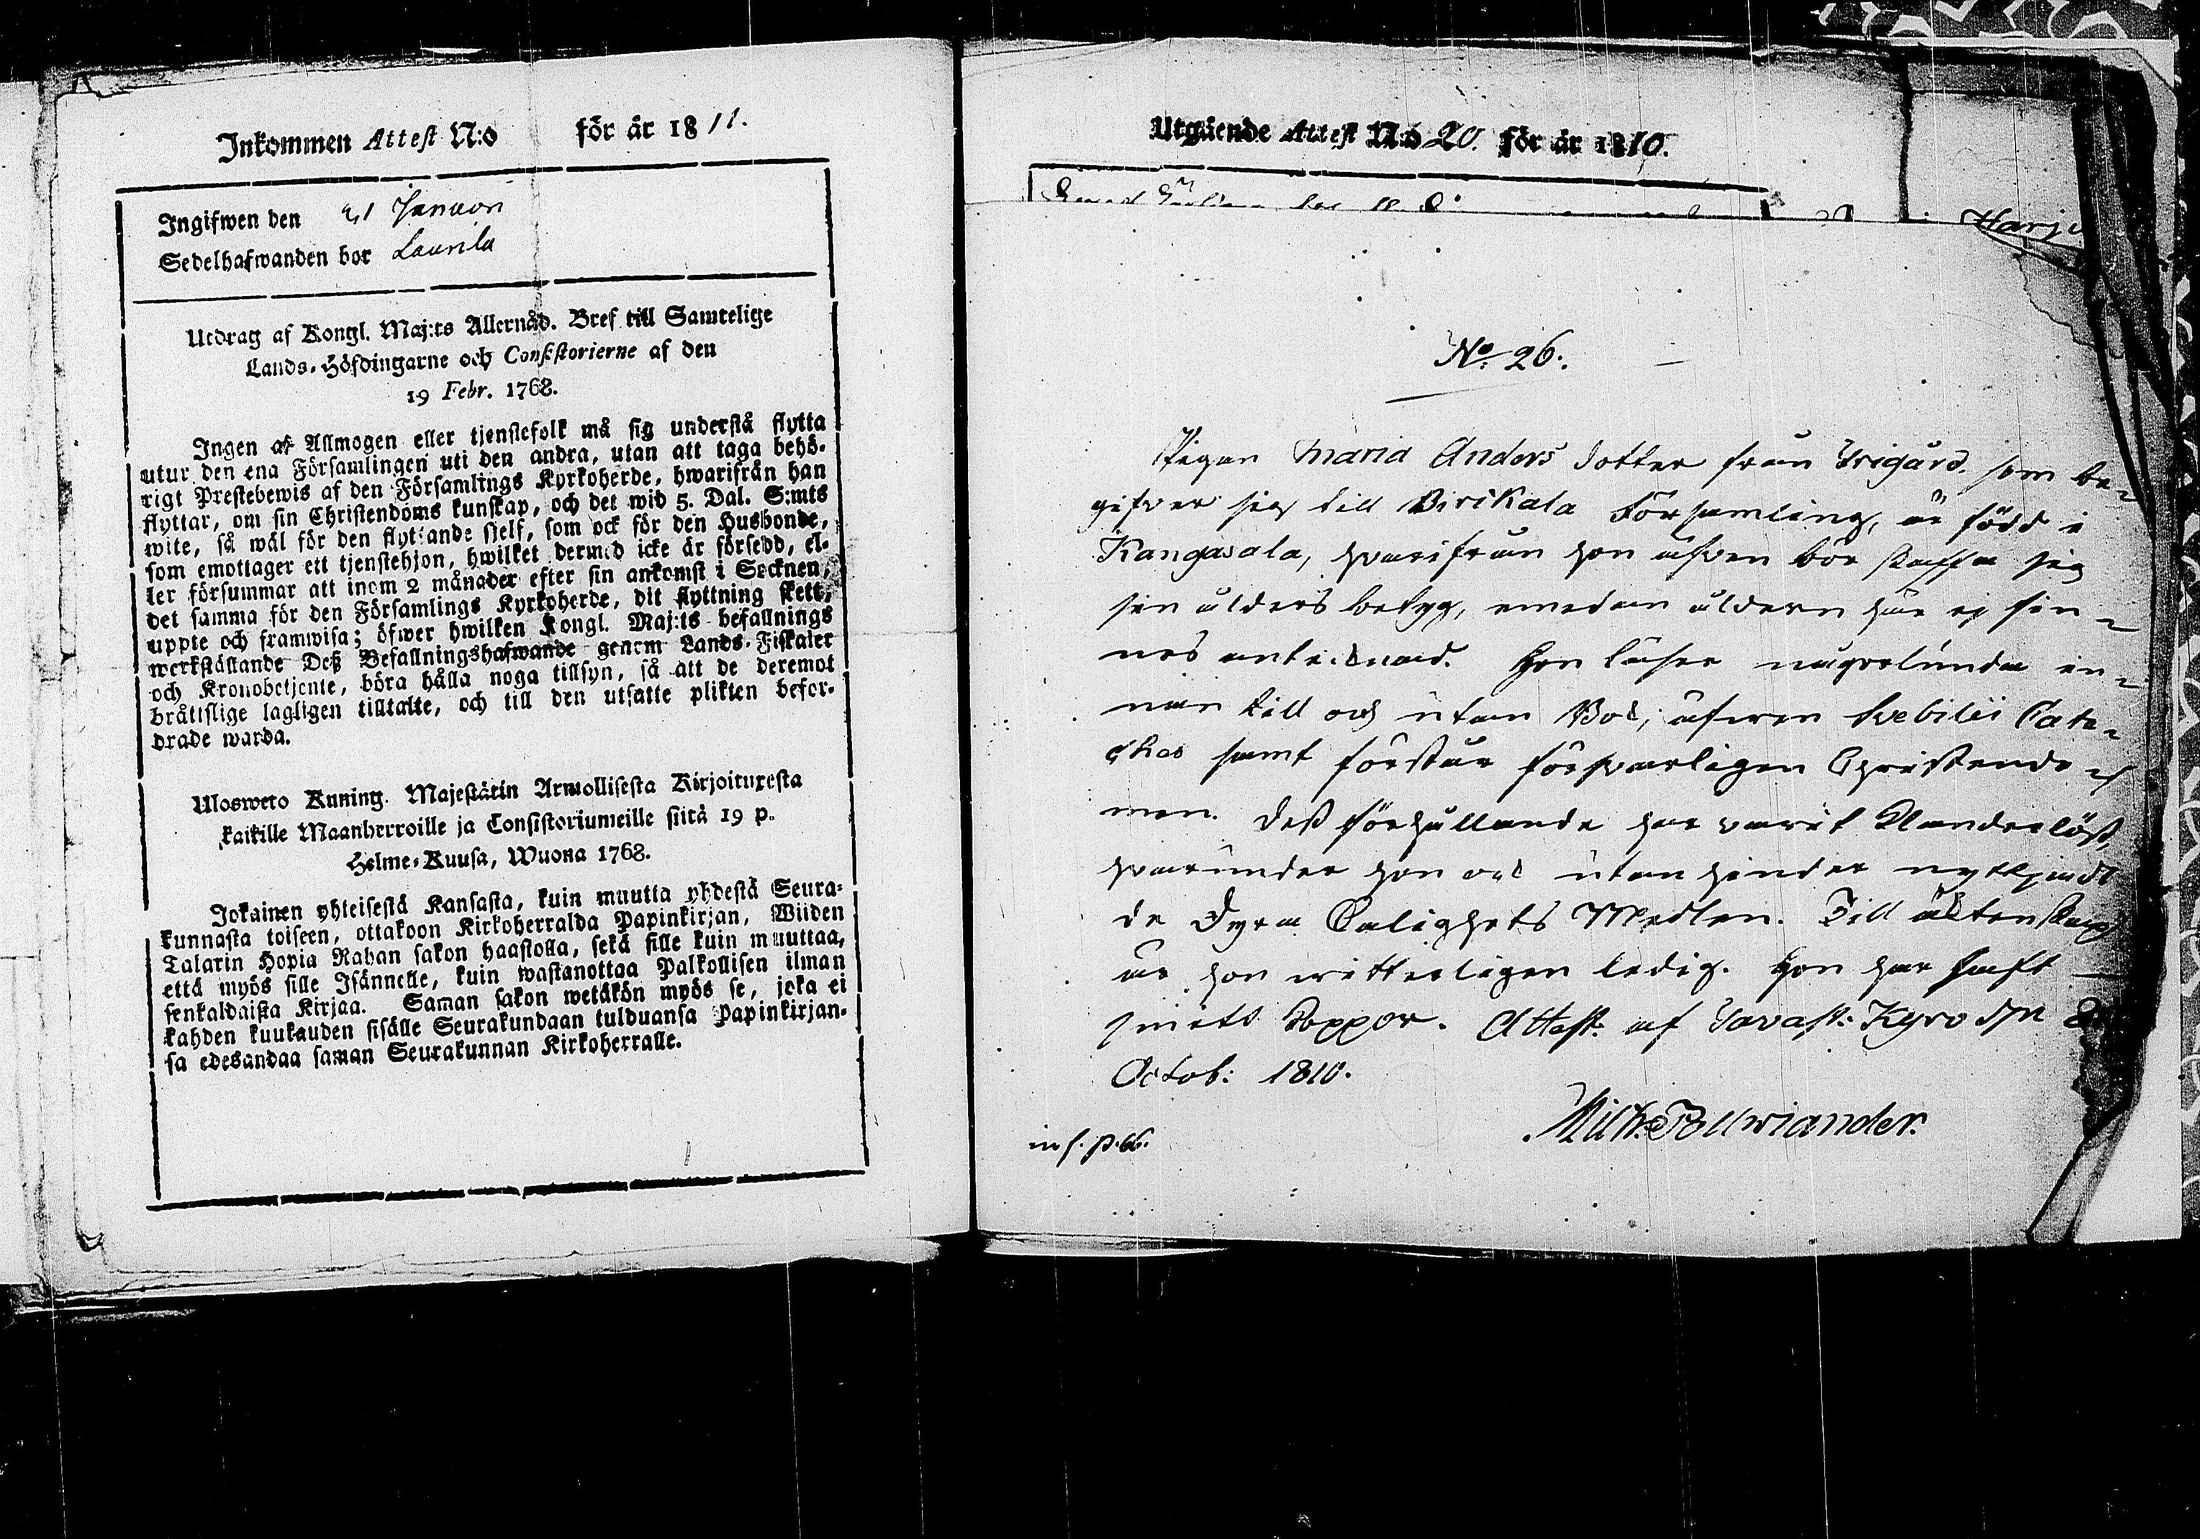 Inkommen Attest N:o för år 1811.
Ingifwen den 21 Januari
Sedelhafwanden bor Laurila
Utdrag af Kongl. Maj:ts Allernåd. Bref till Samtelige
Lands-Höfdingarne och Consistorierne af den
19 Febr. 1768.
Ingen af Allmogen eller tjenstefolk må sig understå flytta
utur den ena Församlingen uti den andra, utan att taga behö-
rigt Prestebewis af den Församlings Kyrkoherde, hwarifrån han
flyttar, om sin Christendoms kunskap, och det wid 5. Dal. S:mts
wite, så wäl för den flyttande sjelf, som ock för den Husbonde,
som emottager ett tjenstehjon, hwilket dermed icke är försedd, el-
ler försummar att inom 2 månader efter sin ankomst i Socknen,
det samma för den Församlings Kyrkoherde, dit flyttning skett,
uppte och framwisa; öfwer hwilken Kongl. Maj:ts befallnings
werkställande Deß Befallningshafwande genom Lands-Fiskaler
och Kronobetjente, böra hålla noga tillsyn, så att de deremot
bråttslige lagligen tilltalte, och till den utsatte plikten befor-
drade warda.
Ulosweto Kuning. Majestätin Armollisesta Kirjoituxesta
kaikille Maanherroille ja Consistoriumeille siitä 19 p.
Helme-Kuusa, Wuona 1768.
Jokainen yhteisestä Kansasta, kuin muutta yhdestä Seura-
kunnasta toiseen, ottakoon Kirkoherralda Papinkirjan, Wiiden
Talarin Hopia Rahan sakon haastolla, sekä sille kuin muuttaa,
että myös sille Isännelle, kuin wastanottaa Palkollisen ilman
senkaldaista Kirjaa. Saman sakon wetäkön myös se, joka ei
kahden kuukauden sisälle Seurakundaan tulduansa Papinkirjan-
sa edesandaa saman Seurakunnan Kirkoherralle.
Utgående Attest N:o 20. för år 1810.
Harju
No 26.
Pigan Maria Anders dotter från Yrigård. som be-
gifver sig till Birikala Församling, är född i
Kangasala, hvarifrån hon äfven bör skaffa sig
sin ålders betyg, emedan åldern här ej fin-
nes antecknad. Hon läser någorlunda in-
nan till och utan Bok, äfwen Svebilii Cate-
ches samt förstår försvarligen Christendo-
men. Deß förhållande har varit klanderlöst,
hvarunder hon ock utan hinder nyttjadt
de Dyra Salighets Medlen. Till äktenskap
är hon witterligen ledig. Hon har haft
Koppor. Attest: af Tavast: Kyro d.
Octob: 1810.
Mich: Pollwiander.